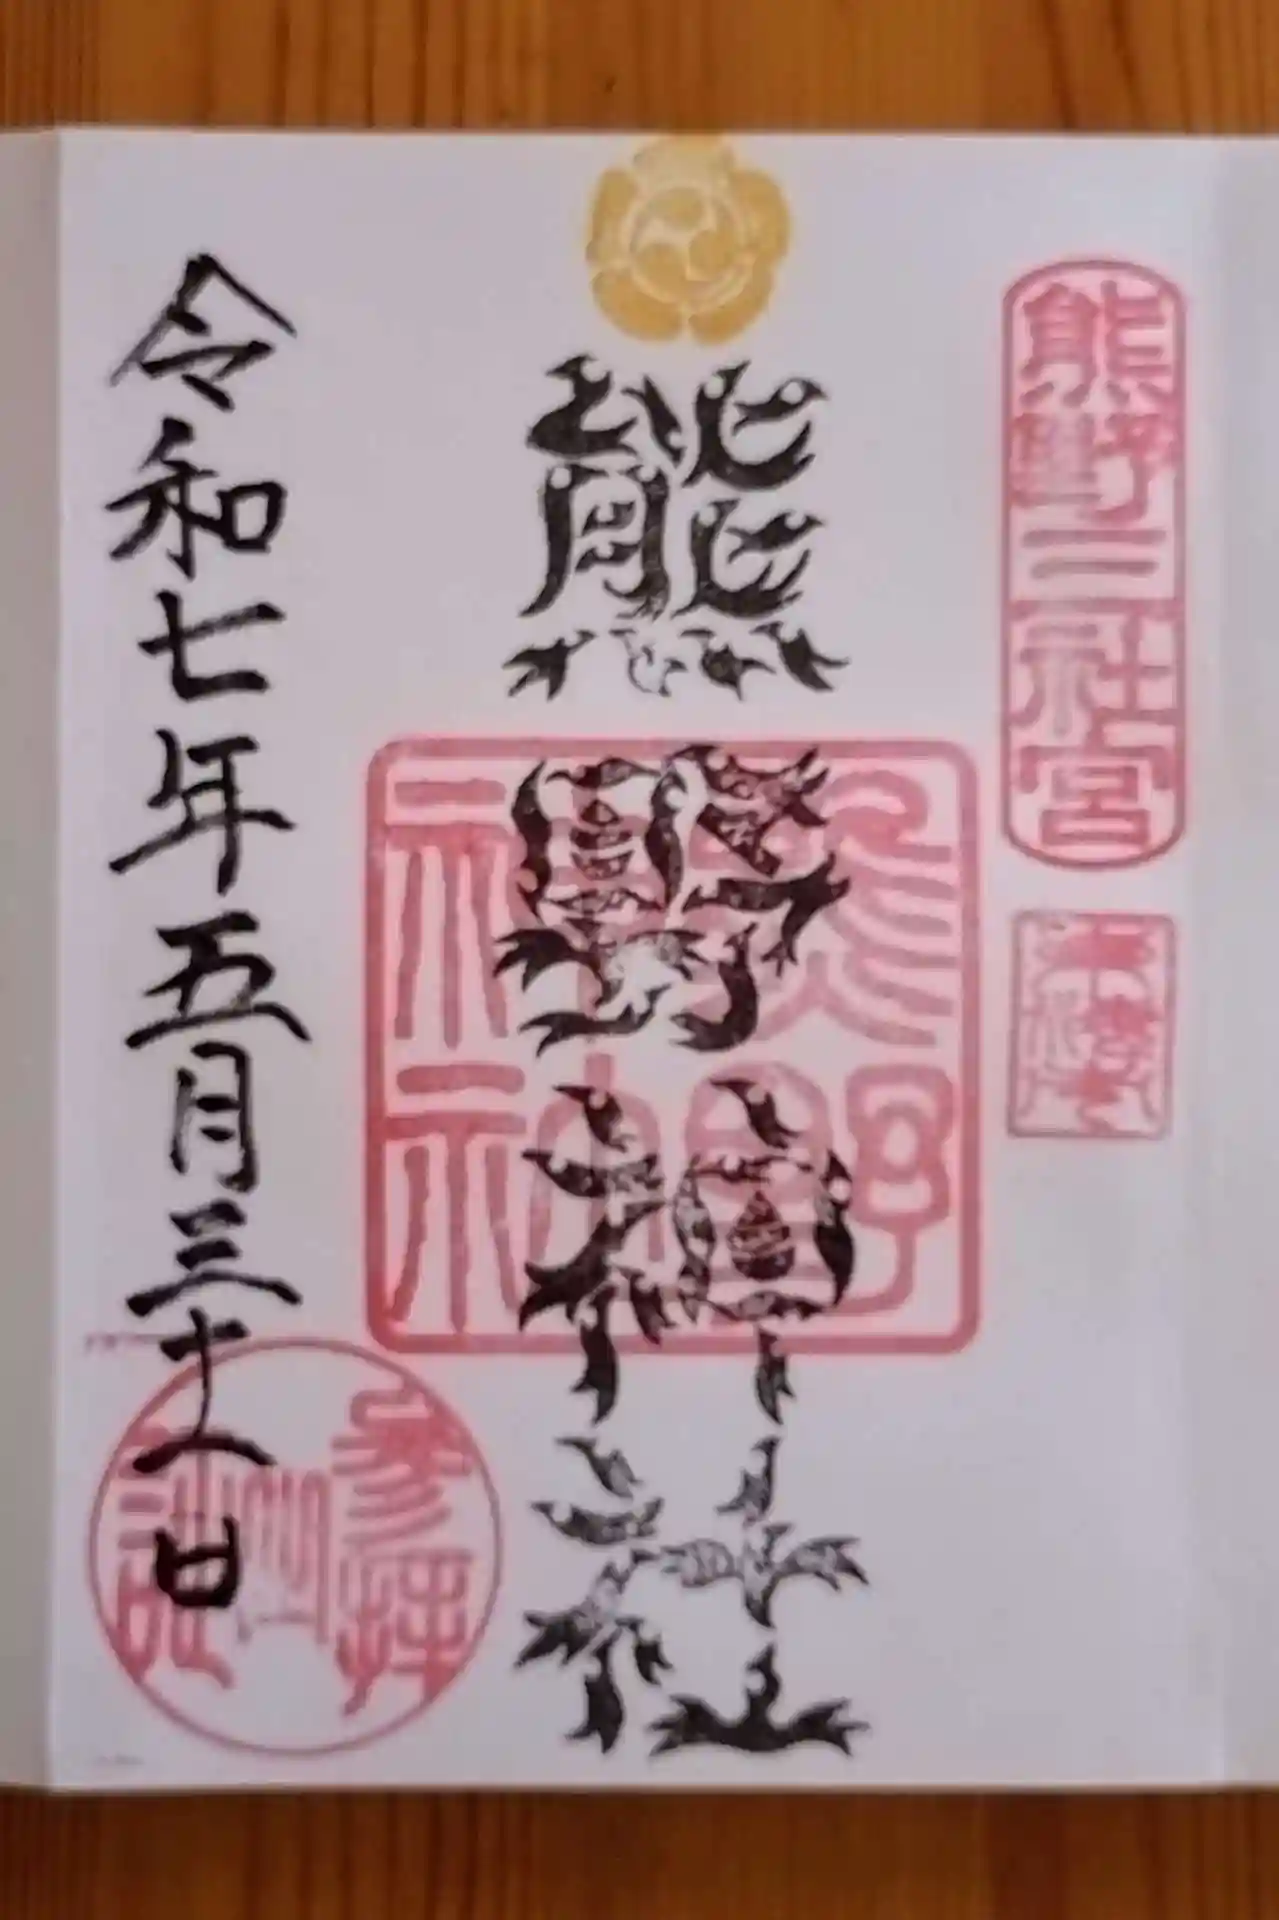 熊野三社宮
熊野神社
令和七年五月三十一日
参拝